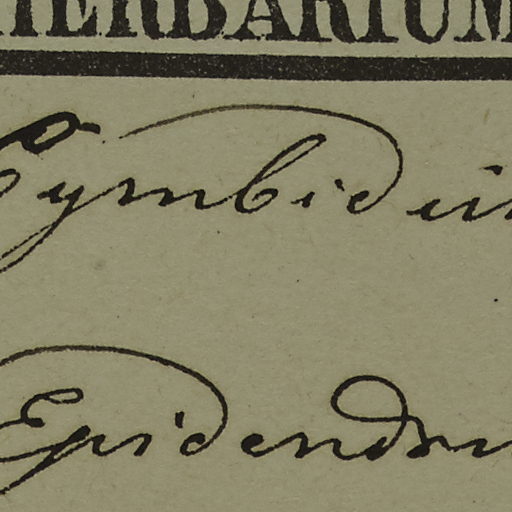 HERBARIUM
Cymbidium
Epidendru